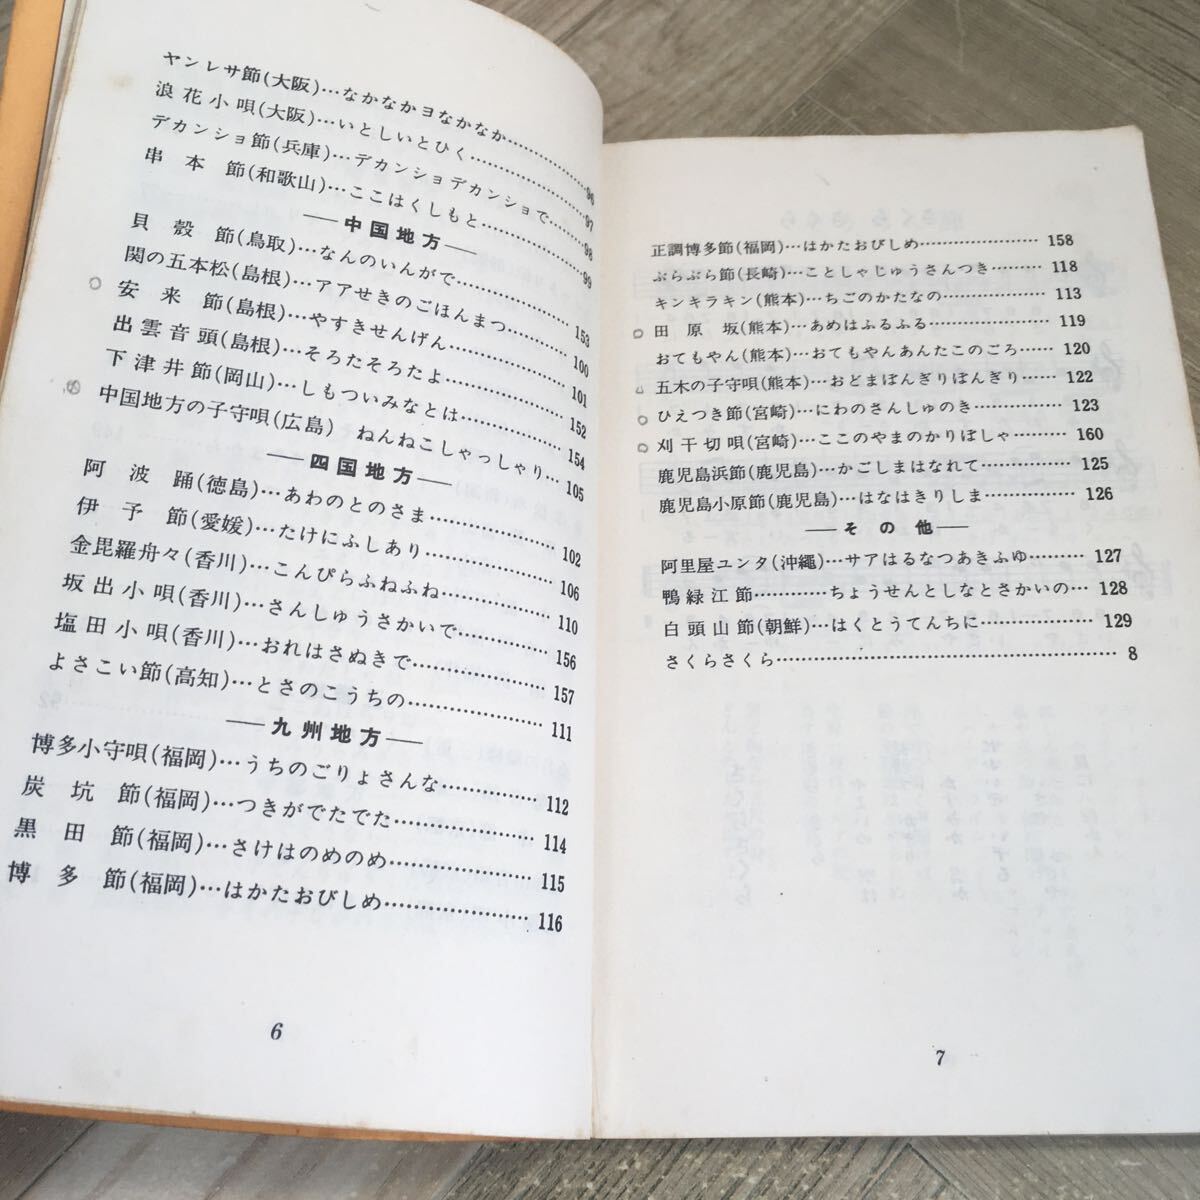 ヤンレサ節(大阪)…なかなかヨなかなか…………96
浪花小唄(大阪)…いとしいとひく…………97
デカンショ節(兵庫)…デカンショデカンショで…………98
串本節(和歌山)…ここはくしもと…………99
―中国地方―
貝殻節(鳥取)…なんのいんがで…………153
関の五本松(島根)…アアせきのごほんまつ…………100
安来節(島根)…やすきせんげん…………101
出雲音頭(島根)…そろたそろたよ…………152
下津井節(岡山)…しもついみなとは…………154
中国地方の子守唄(広島) ねんねこしゃっしゃり…105
―四国地方―
阿波踊(徳島)…あわのとのさま…………102
伊予節(愛媛)…たけにふしあり…………106
金毘羅舟々(香川)…こんぴらふねふね…………110
坂出小唄(香川)…さんしゅうさかいで…………156
塩田小唄(香川)…おれはさぬきで…………157
よさこい節(高知)…とさのこうちの…………111
―九州地方―
博多小守唄(福岡)…うちのごりょさんな…………112
炭坑節(福岡)…つきがでたでた…………114
黒田節(福岡)…さけはのめのめ…………115
博多節(福岡)…はかたおびしめ…………116
6
正調博多節(福岡)…はかたおびしめ…………158
ぶらぶら節(長崎)…ことしゃじゅうさんつき…………118
キンキラキン(熊本)…ちごのかたなの…………113
田原坂(熊本)…あめはふるふる…………119
おてもやん(熊本)…おてもやんあんたこのごろ……120
五木の子守唄(熊本)…おどまぼんぎりぼんぎり……122
ひえつき節(宮崎)…にわのさんしゅのき…………123
刈干切唄(宮崎)…ここのやまのかりぼしゃ…………160
鹿児島浜節(鹿児島)…かごしまはなれて…………125
鹿児島小原節(鹿児島)…はなはきりしま…………126
―その他―
阿里屋ユンタ(沖縄)…サアはるなつあきふゆ………127
鴨緑江節…………ちょうせんとしなとさかいの…128
白頭山節(朝鮮)…はくとうてんちに…………129
さくらさくら…………8
7